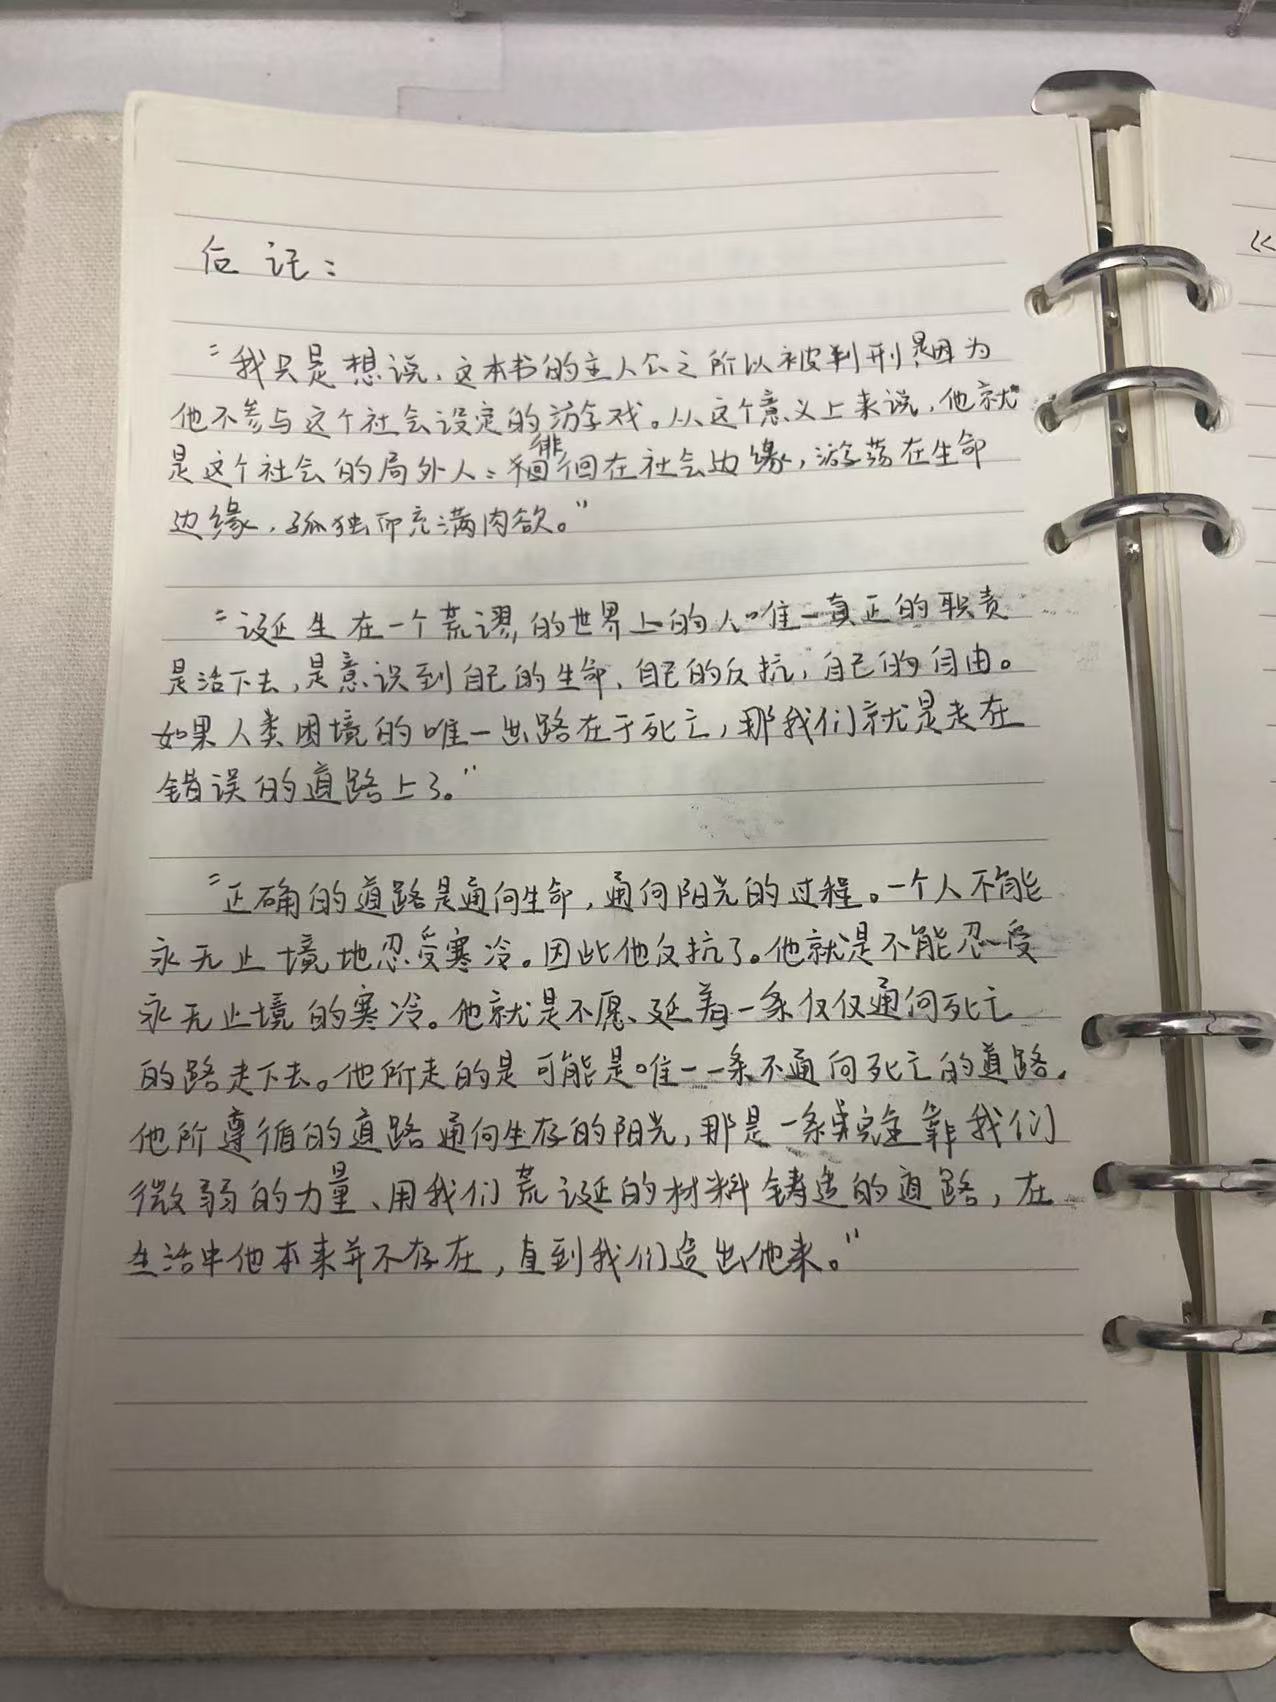 后记：
“我只是想说，这本书的主人公之所以被判刑，是因为
他不参与这个社会设定的游戏。从这个意义上来说，他就
是这个社会的局外人：徘徊在社会边缘，游荡在生命
边缘，孤独而充满肉欲。”
“诞生在一个荒谬的世界上的人唯一真正的职责
是活下去，是意识到自己的生命、自己的反抗，自己的自由。
如果人类困境的唯一出路在于死亡，那我们就是走在
错误的道路上了。”
“正确的道路是通向生命，通向阳光的过程。一个人不能
永无止境地忍受寒冷。因此他反抗了。他就是不能忍受
永无止境的寒冷。他就是不愿延着一条仅仅通向死亡
的路走下去。他所走的是可能是唯一一条不通向死亡的道路。
他所遵循的道路通向生存的阳光，那是一条完全靠我们
微弱的力量、用我们荒诞的材料铸造的道路，在
生活中他本来并不存在，直到我们造出他来。”
《